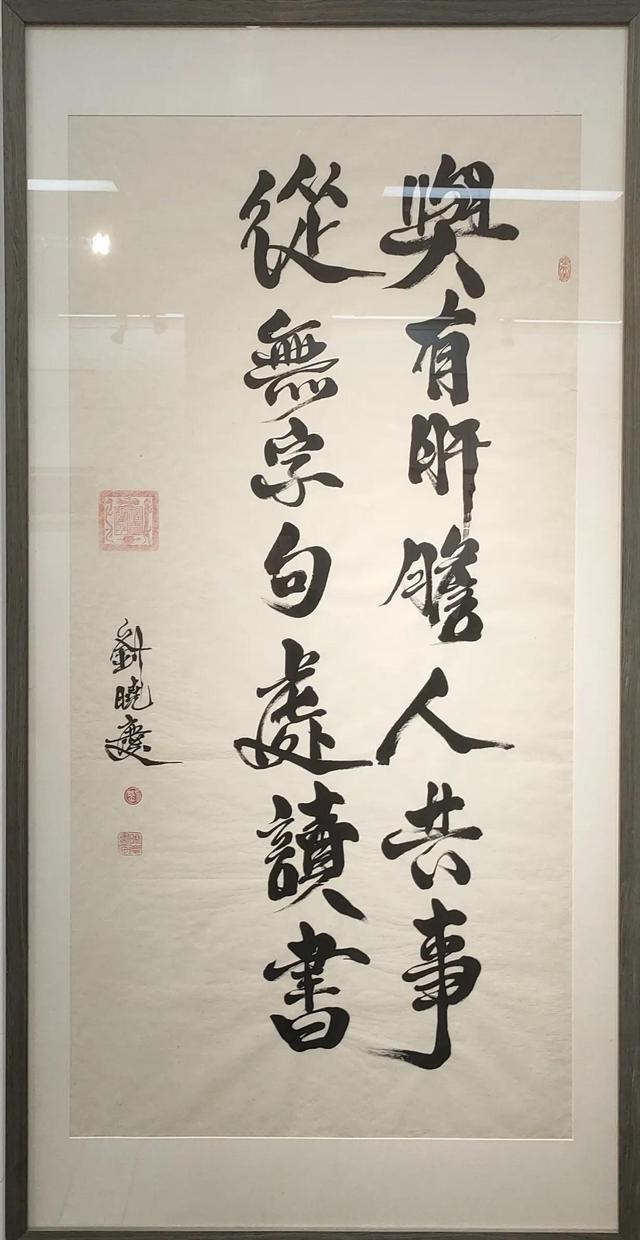 與有肝膽人共事
從無字句處讀書
劉曉慶